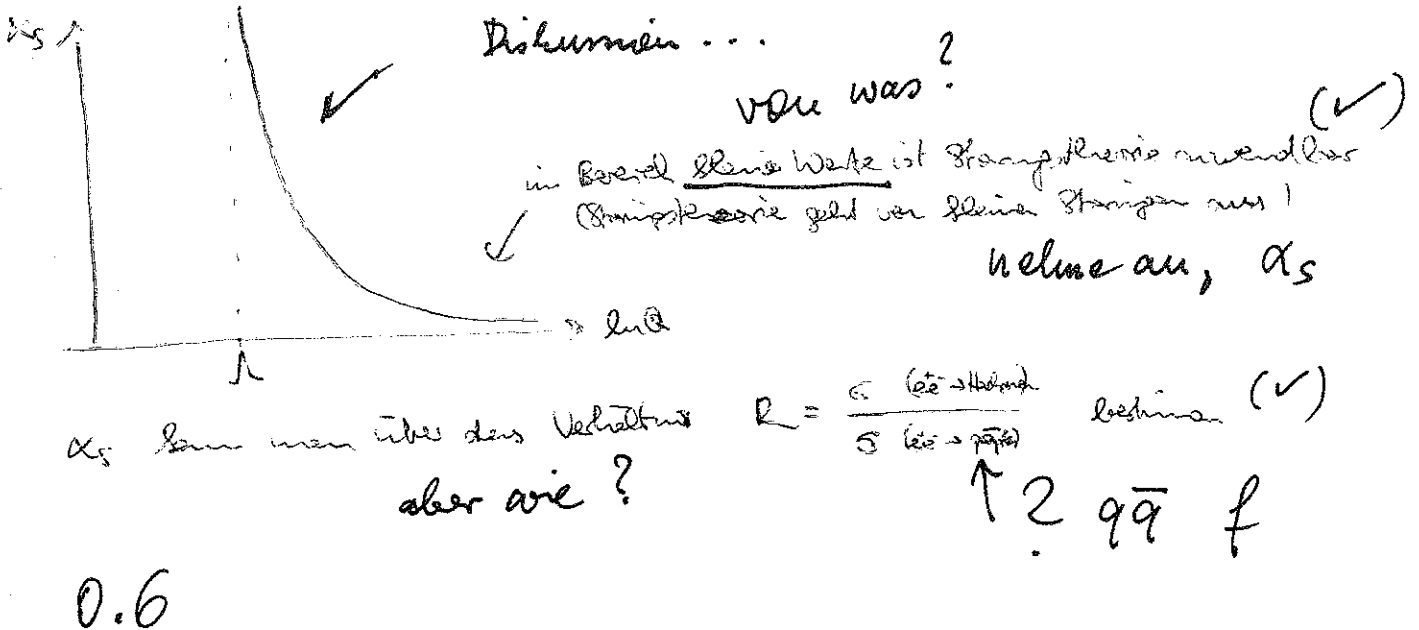 αs
Diskussion ...
von was?
(✓)
im Bereich kleine Werte ist Störungstheorie anwendbar
(Störungstheorie geht von kleinen Störungen aus!
nehme an, αs
ln Q
Λ
αs kann man über das Verhältnis R = σ (e⁺e⁻→Hadronen) / σ (e⁺e⁻→ ) bestimmen (✓)
aber wie?
↑ ? qq̄ f
0.6